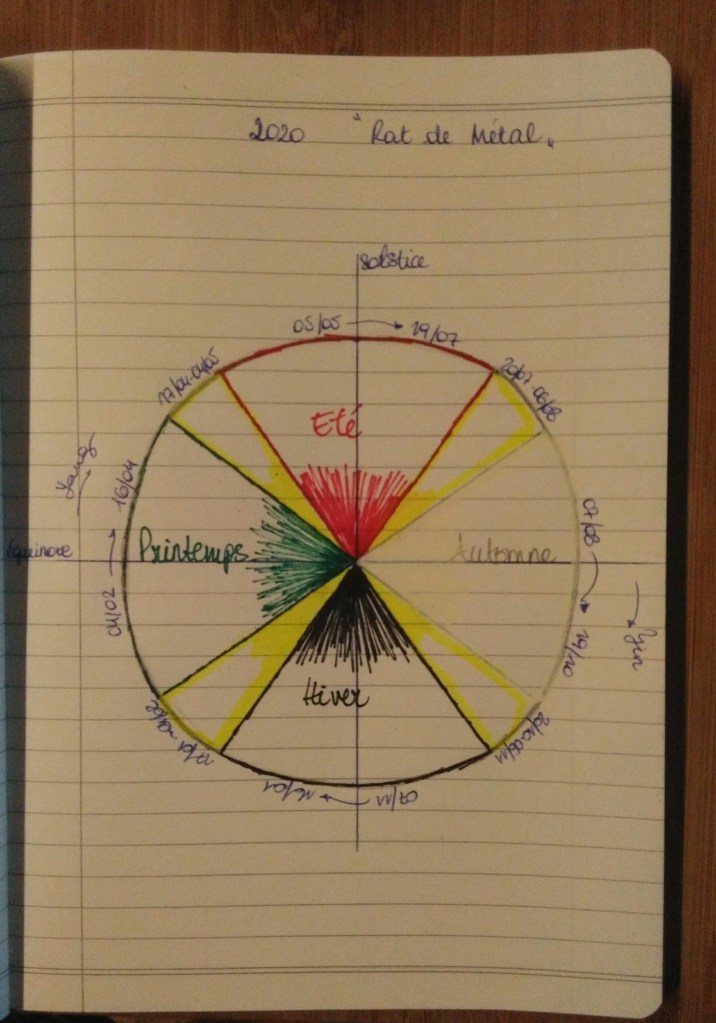 2020 "Rat de Métal"
Solstice
05/05 → 19/07
17/04-04/05
20/07-06/08
Eté
Yang
16/04
07/08
Equinoxe
Printemps
Automne
04/02
19/10
Yin
Hiver
20/10-06/11
16/01
07/11